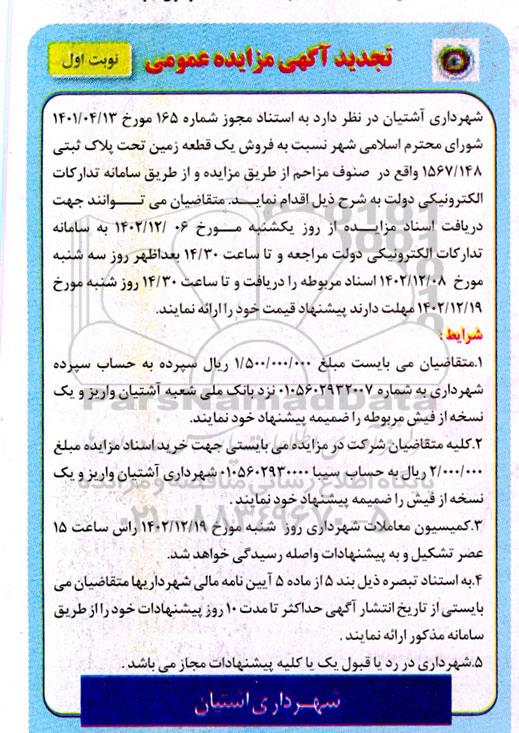 تجدید آگهی مزایده عمومی
نوبت اول
شهرداری آشتیان در نظر دارد به استناد مجوز شماره ۱۶۵ مورخ ۱۴۰۱/۰۴/۱۳
شورای محترم اسلامی شهر نسبت به فروش یک قطعه زمین تحت پلاک ثبتی
۱۵۶۷/۱۴۸ واقع در صنوف مزاحم از طریق مزایده و از طریق سامانه تدارکات
الکترونیکی دولت به شرح ذیل اقدام نمایـــد. متقاضیان می تــوانند جهت
دریافت اسناد مزایـــده از روز یکشنبه مـــورخ ۰۶ /۱۴۰۲/۱۲ به سامانه
تدارکات الکترونیکی دولت مراجعه و تا ساعت ۱۴/۳۰ بعداظهر روز سه شنبه
مورخ ۱۴۰۲/۱۲/۰۸ اسناد مربوطه را دریافت و تا ساعت ۱۴/۳۰ روز شنبه مورخ
۱۴۰۲/۱۲/۱۹ مهلت دارند پیشنهاد قیمت خود را ارائه نمایند.
شرایط:
۱.متقاضیان می بایست مبلغ ۱/۵۰۰/۰۰۰/۰۰۰ ریال سپرده به حساب سپرده
شهرداری به شماره ۰۱۰۵۶۰۲۹۳۲۰۰۷ نزد بانک ملی شعبه آشتیان واریز و یک
نسخه از فیش مربوطه را ضمیمه پیشنهاد خود نمایند.
ParsNamadData
۲.کلیه متقاضیان شرکت در مزایده می بایستی جهت خرید اسناد مزایده مبلغ
۲/۰۰۰/۰۰۰ ریال به حساب سیبا ۰۱۰۵۶۰۲۹۳۰۰۰۰ شهرداری آشتیان واریز و یک
نسخه از فیش را ضمیمه پیشنهاد خود نمایند.
پایگاه اطلاع رسانی مناقصه و مزایده
۰۲۱-۸۸۳۴۹۶۷۰-۵
۳.کمیسیون معاملات شهرداری روز شنبه مورخ ۱۴۰۲/۱۲/۱۹ راس ساعت ۱۵
عصر تشکیل و به پیشنهادات واصله رسیدگی خواهد شد.
۴.به استناد تبصره ذیل بند ۵ از ماده ۵ آیین نامه مالی شهرداریها متقاضیان می
بایستی از تاریخ انتشار آگهی حداکثر تا مدت ۱۰ روز پیشنهادات خود را از طریق
سامانه مذکور ارائه نمایند.
۵.شهرداری در رد یا قبول یک یا کلیه پیشنهادات مجاز می باشد.
شهـرداری استیان